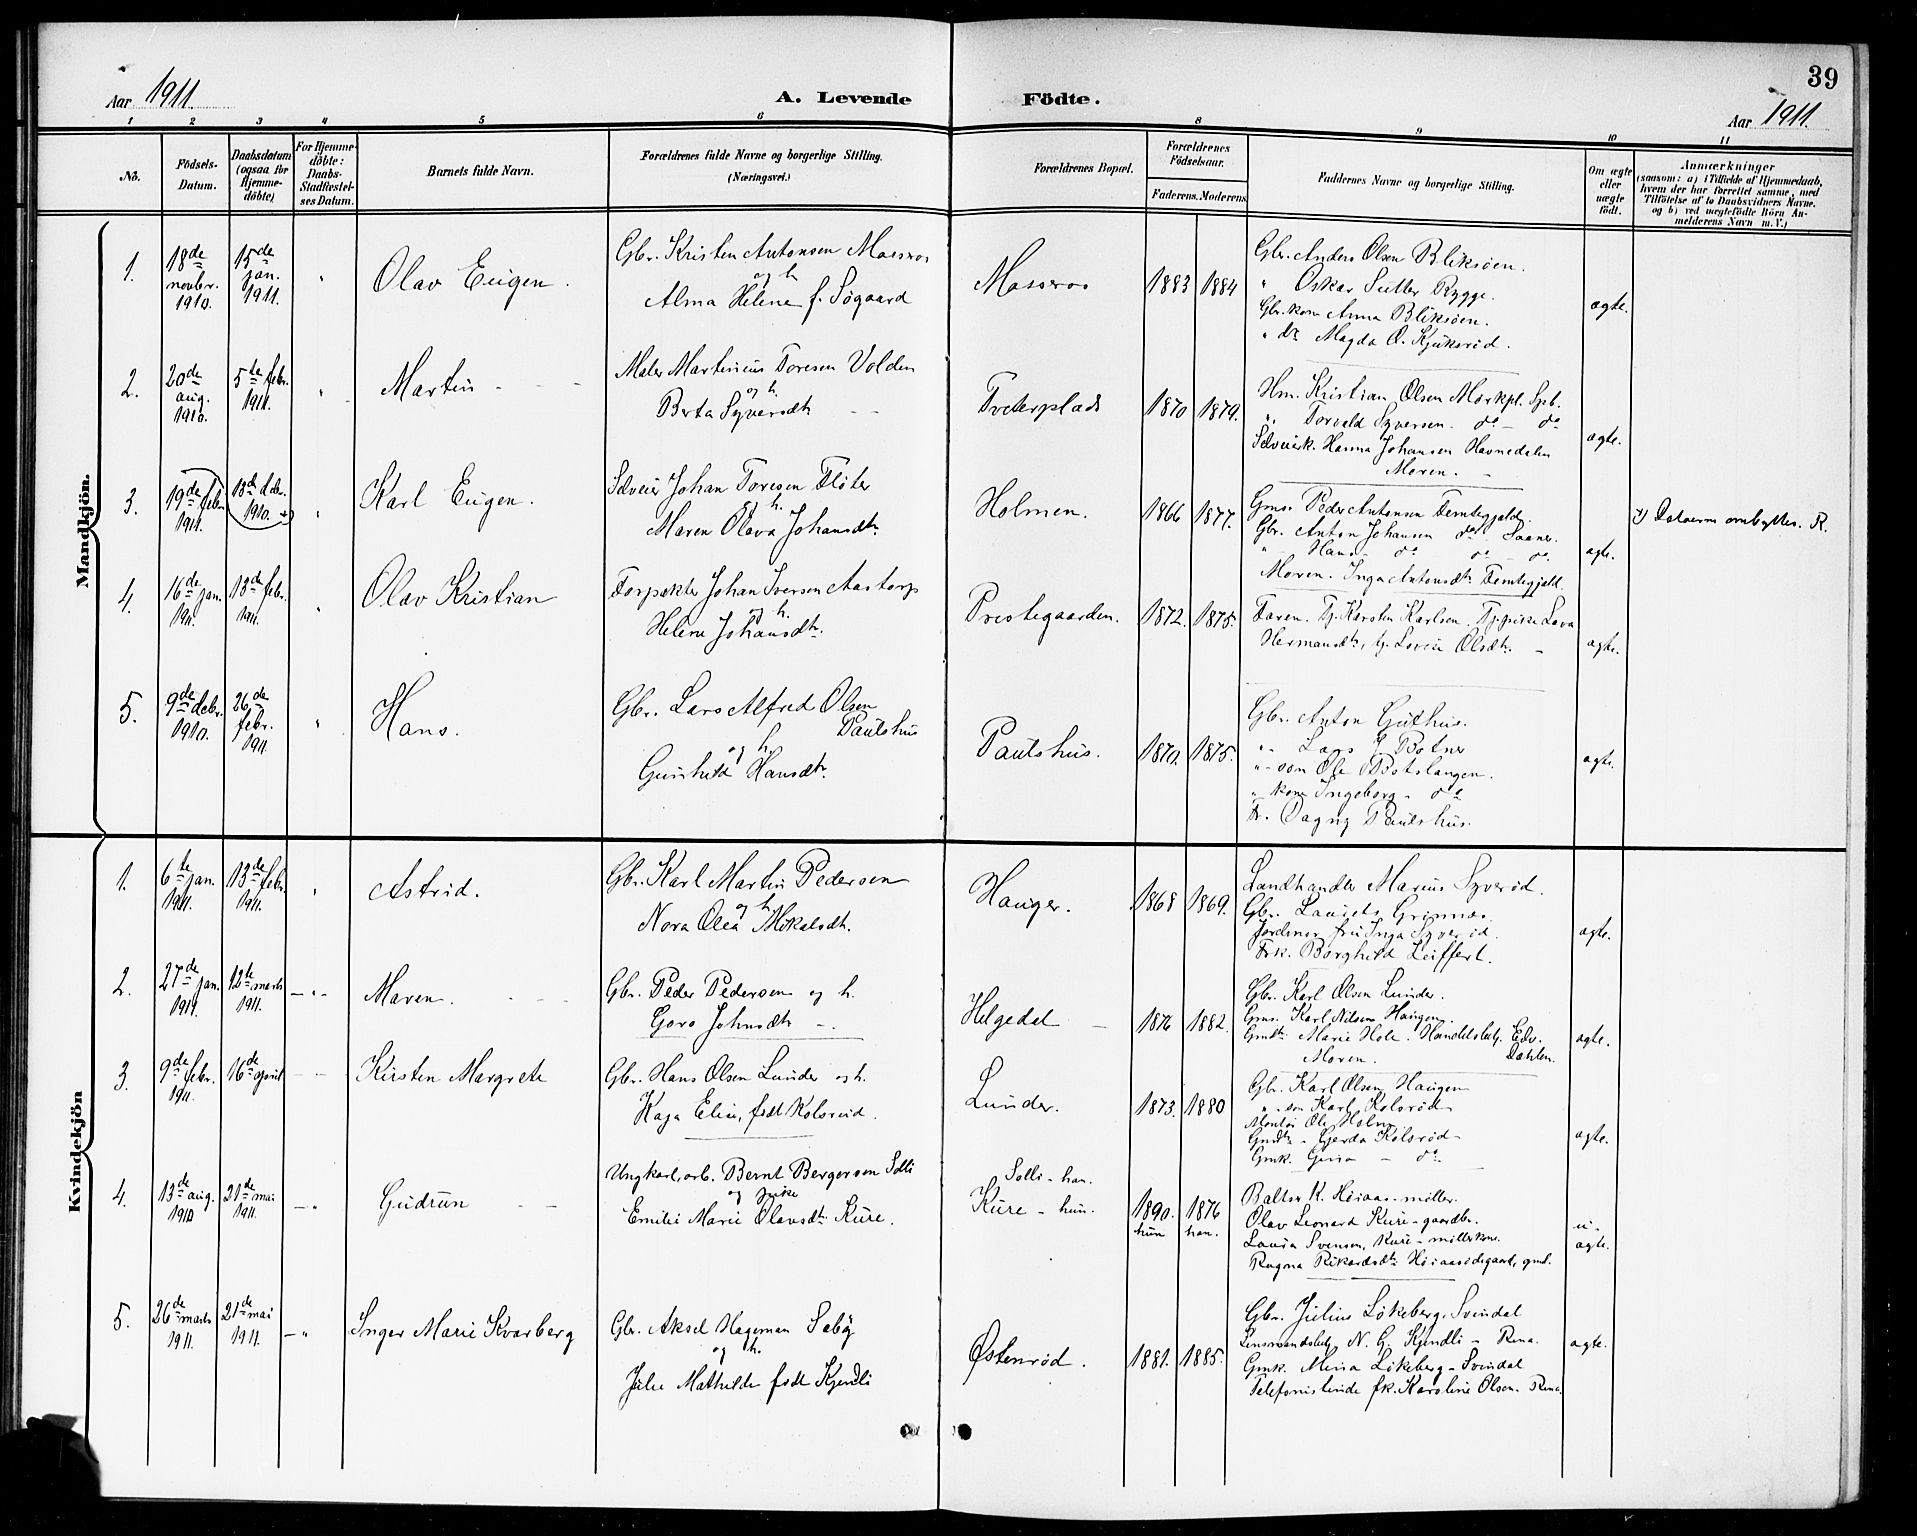 39
Aar 1911.
A. Levende Födte.
Aar 1911.
1 2 3 4 5 6 8 9 10 11
No.
Födsels-
Datum.
Daabsdatum
(ogsaa for
Hjemme-
döbte)
For Hjemme-
döbte:
Daabs-
Stadfæstel-
ses Datum.
Barnets fulde Navn.
Forældrenes fulde Navne og borgerlige Stilling.
(Næringsvei.)
Forældrenes Bopæl.
Forældrenes
Födselsaar.
Faderens. Moderens
Faddernes Navne og borgerlige Stilling.
Om ægte
eller
uægte
födt.
Anmærkninger
(saasom: a) i Tilfælde af Hjemmedaab,
hvem der har forrettet samme, med
Tilföielse af to Daabsvidners Navne.
og b) ved uægtefödte Börn An-
melderens Navn m. V.)
Mandkjön.
1.
18de
novbr.
1910.
15de
jan.
1911.
"
Olav Eugen.
Gbr. Kristen Antonsen Mosseros
og h
Alma Helene f. Søgaard
Mosseros
1883 1884
Gbr. Anders Olsen Bliksöen.
" Oskar Sutter Rygge.
Gbr.kone Anna Bliksöen.
" dr. Magda O. Kjuksröd.
ægte.
2.
20de
aug.
1910.
5te febr.
1911.
"
Martin
Maler Martinius Toresen Volden
og h.
Berta Syversdtr
Tveterplads
1870 1879.
Hm. Kristian Olsen Mörkpl. Spb.
" Torvald Syversen do do
Selveierk. Hanna Johansen Havnedalen
Moren.
ægte.
3.
19de febr.
1911.
18de debr.
1910.
"
Karl Eugen.
Selveier Johan Toresen Flöter
h.
Maren Olava Johansdtr.
Holmen.
1866 1877.
Gms. Peder Antonsen Femtegjeld.
Gbr. Anton Johansen do Saaner.
" Hans do do do
Moren. Inga Antonsdtr Femtegjeld.
ægte.
x) Datoerne ombyttes. R.
4.
16de jan.
1911.
13de febr.
1911.
"
Olav Kristian
Forpakter Johan Iversen Aastorp
og h.
Helene Johansdtr.
Prestegaarden.
1872. 1875.
Faren. Tj. Karsten Karlsen. Tj.pike Lava
Hermansdtr, tj. Lovise Olsdtr.
ægte.
5.
9de debr.
1910.
26de
febr.
1911
"
Hans.
Gbr. Lars Alfred Olsen
Paulshus
og h.
Gunhild Hansdtr.
Paulshus.
1870. 1875.
Gbr. Anton Guthus.
" Lars J. Botner
" son Ole Botslangen.
" kone Ingeborg do
Fr. Dagny Paulshus.
ægte.
Kvindekjön
1.
6te jan.
1911.
13de febr.
1911.
"
Astrid.
Gbr. Karl Martin Pedersen
og h
Nora Olea Mikalsdtr.
Hauger.
1868 1869.
Landhandler Marius Syveröd.
Gbr. Laurits Grimnæs
Jordmor fru Inga Syveröd.
Frk. Borghild Leiffert.
ægte.
2.
27de jan.
1911
12te marts
1911.
"
Maren.
Gbr. Peder Pedersen og h.
Goro Johnsdtr
Helgedal
1876 1882.
Gbr. Karl Olsen Lunder.
Gms. Karl Nilsen Haugen.
Gmdtr Marie Hole. Handelsbetj. Edv.
Moren. Dahlen.
ægte.
3.
9de febr.
1911.
16de april
Kirsten Margrete
Gbr. Hans Olsen Lunder og h.
Kaja Elin, født Kolsröd.
Lunder.
1873. 1880
Gbr. Karl Olsen Haugen
" son Karl Kolsröd
Montör Ole Holm
Gmdtr Gerda Kolsröd
Gmk. Gina do
ægte.
4.
13de aug.
1910
21de mai
1911.
"
Gudrun
Ungkarl, arb. Bernt Bergersen Solli
og pike
Emilie Marie Olavsdtr Kure.
Solli - han.
Kure - hun.
1890. 1876
hun han.
Baltser K. Höiaas - möller.
Olav Leonard Kure - gaardbr.
Laura Svensen, Kure - möllerkone.
Ragna Rikardsdtr Höiaasödegaard, gmd.
u-
ægte.
5.
26de marts
1911.
21de mai
1911.
"
Inger Marie Kvarberg
Gbr. Aksel Hageman Sebög
og h.
Julie Mathilde født Kjendli
Østenröd.
1881. 1885.
Gbr. Julius Lökeberg, Svindal
Lensmandsbetj. N. G. Kjendli - Rena.
Gmk. Mina Lökeberg - Svindal
Telefonistinde frk. Karoline Olsen. Rena.
ægte.